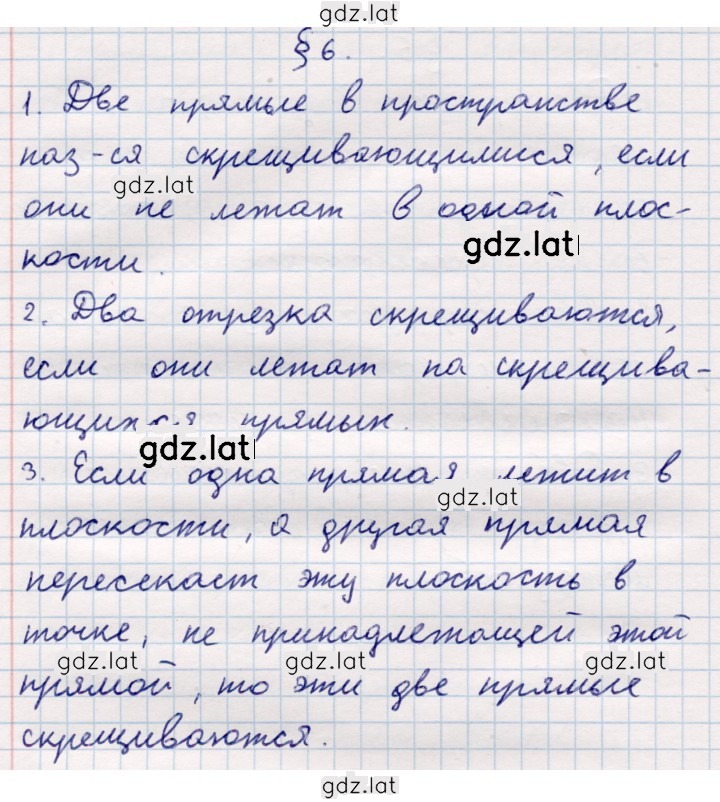 gdz.lat
§ 6.
1. Две прямые в пространстве
наз-ся скрещивающимися, если
gdz.lat
они не лежат в одной плос-
gdz.lat
кости.
2. Два отрезка скрещиваются,
если они лежат на скрещива-
ющихся прямых.
gdz.lat
3. Если одна прямая лежит в
gdz.lat
плоскости, а другая прямая
пересекает эту плоскость в
точке, не принадлежащей этой
gdz.lat gdz.lat gdz.lat
прямой, то эти две прямые
скрещиваются.
gdz.lat